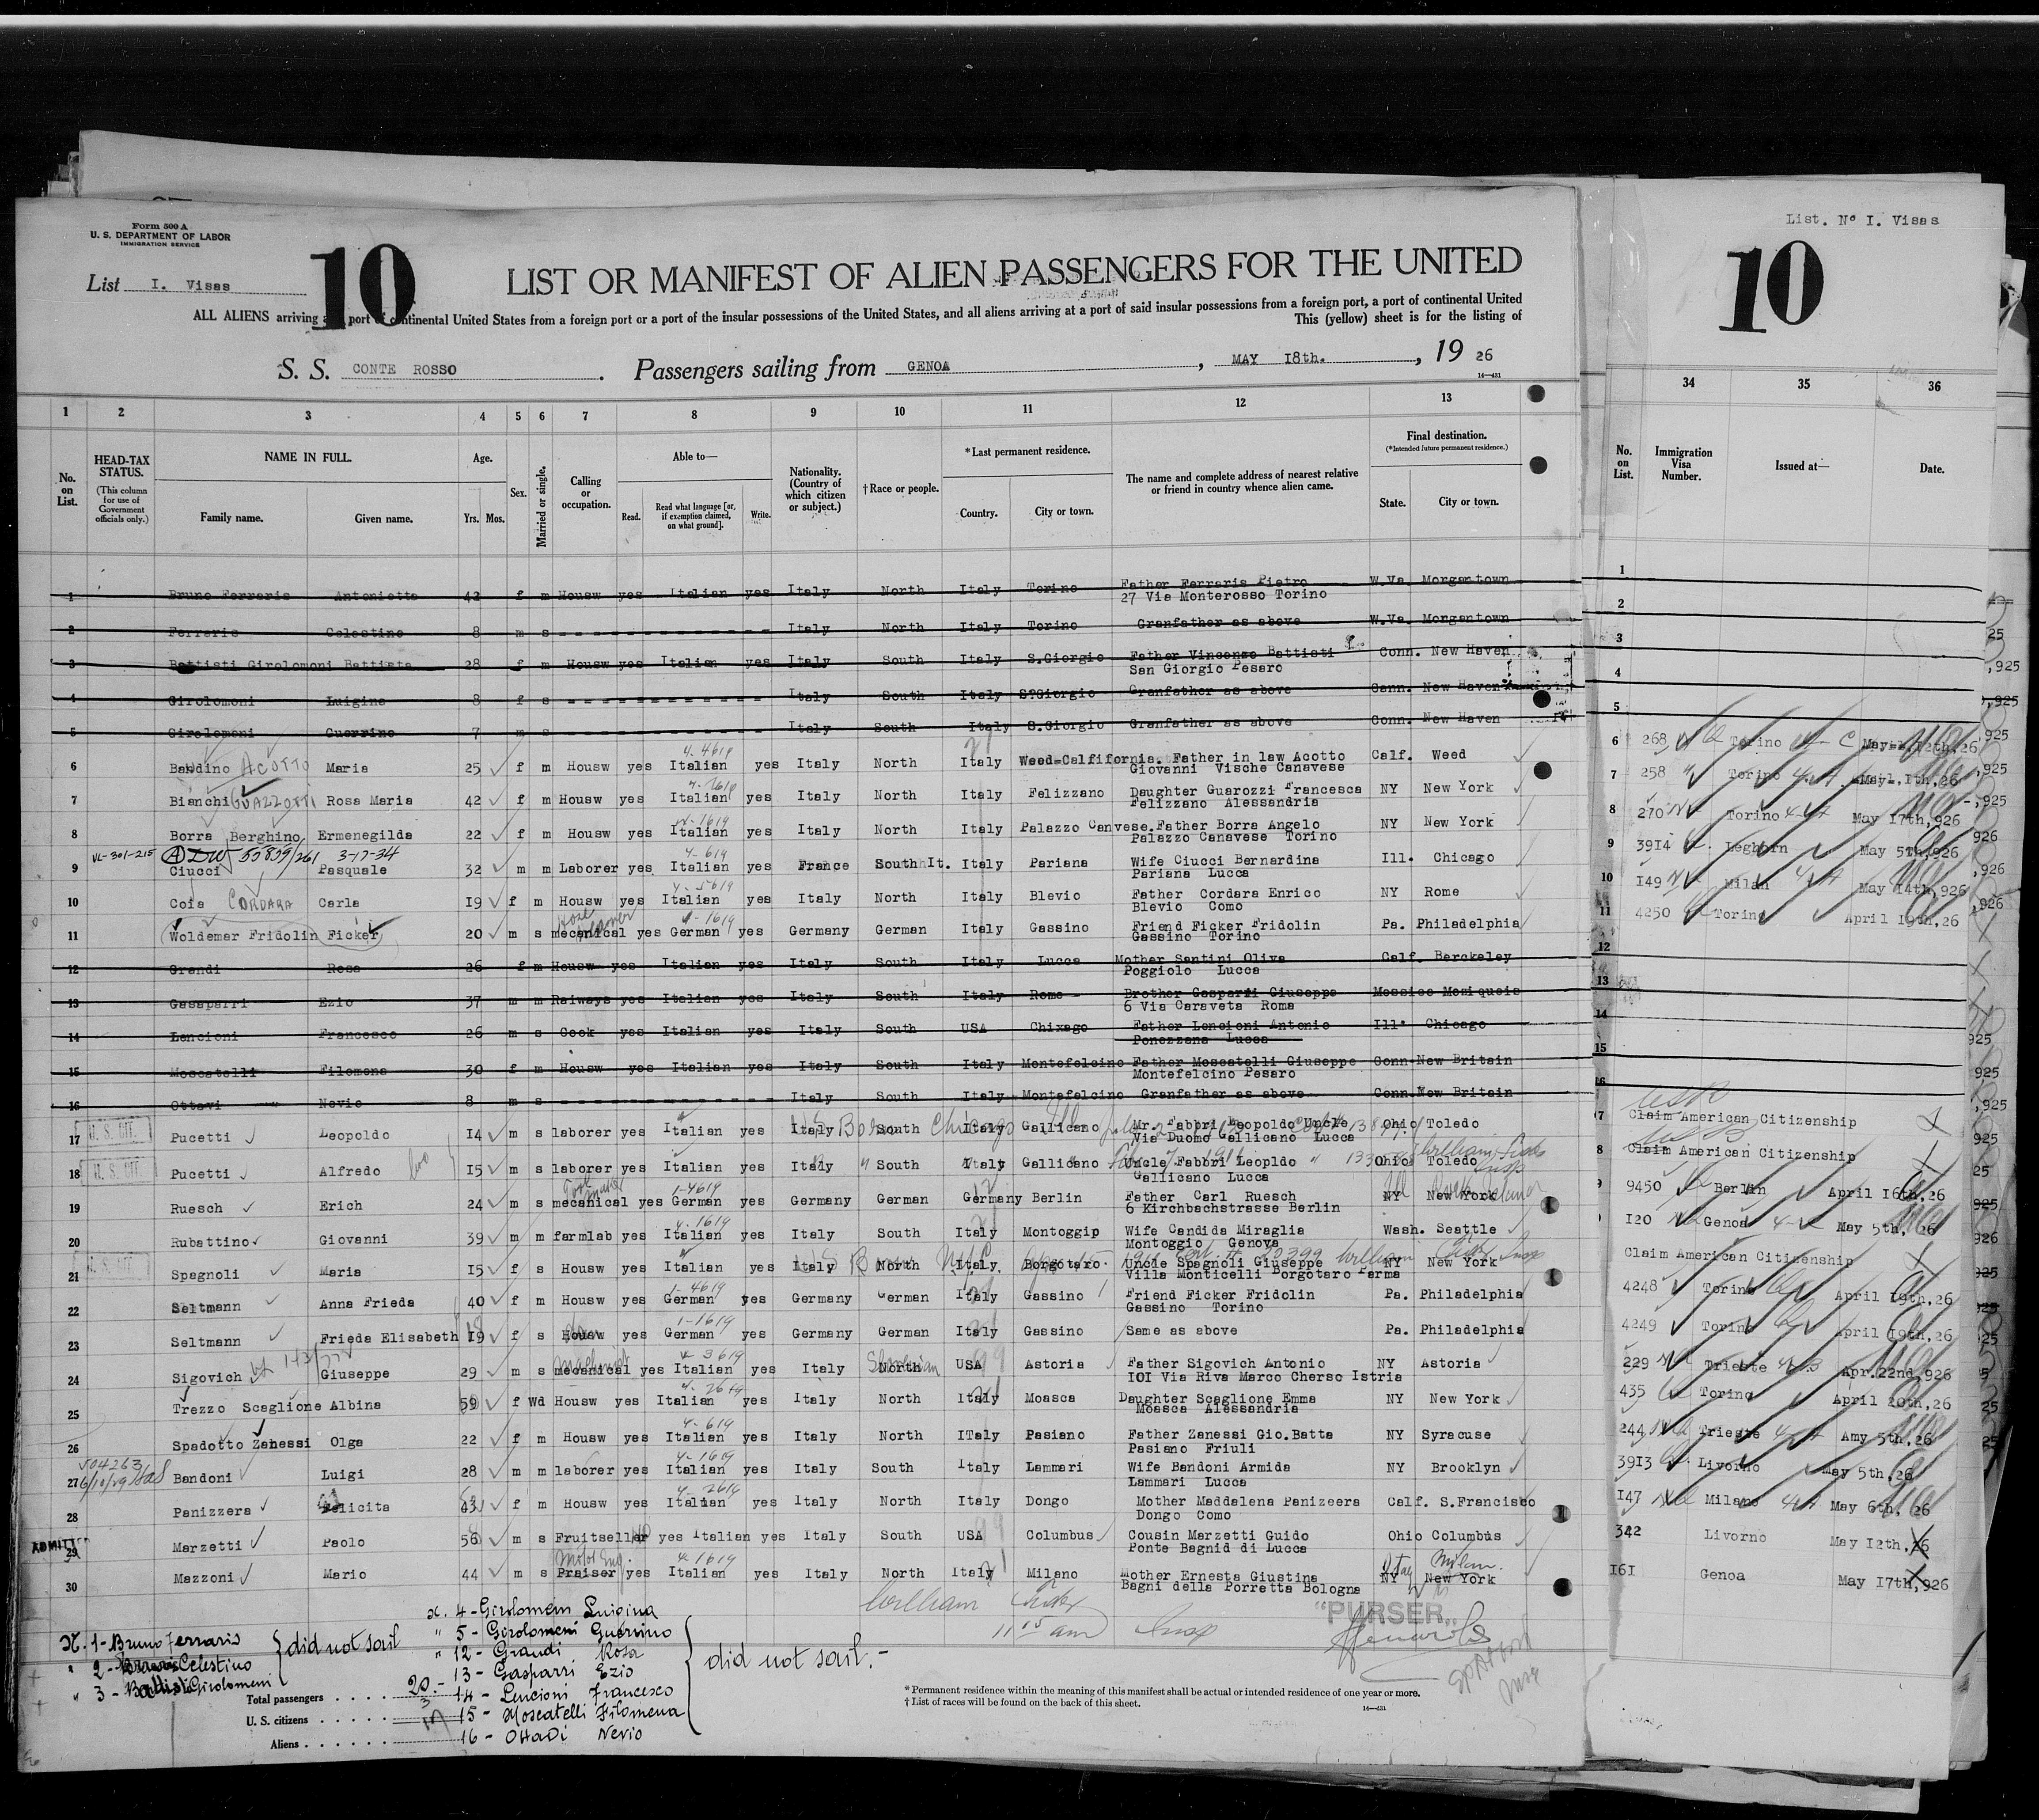 Form 500 A
U. S. DEPARTMENT OF LABOR
IMMIGRATION SERVICE
List I. Visas
10
LIST OR MANIFEST OF ALIEN PASSENGERS FOR THE UNITED
ALL ALIENS arriving at a port of continental United States from a foreign port or a port of the insular possessions of the United States, and all aliens arriving at a port of said insular possessions from a foreign port, a port of continental United
This (yellow) sheet is for the listing of
S. S. CONTE ROSSO. Passengers sailing from GENOA, MAY 18th., 19 26
14—431
1 2 3 4 5 6 7 8 9 10 11 12 13
No. on List.
HEAD-TAX STATUS. (This column for use of Government officials only.)
NAME IN FULL.
Family name. Given name.
Age. Yrs. Mos.
Sex.
Married or single.
Calling or occupation.
Able to—
Read. Read what language [or, if exemption claimed, on what ground]. Write.
Nationality. (Country of which citizen or subject.)
†Race or people.
*Last permanent residence.
Country. City or town.
The name and complete address of nearest relative or friend in country whence alien came.
Final destination. (*Intended future permanent residence.)
State. City or town.
1 Bruno Ferraris Antonietta 42 f m Housw yes Italian yes Italy North Italy Torino Father Ferraris Pietro W.Va. Morgantown
27 Via Monterosso Torino
2 Ferraris Celestino 8 m s Italy North Italy Torino Granfather as above W.Va. Morgantown
3 Battisti Girolomoni Battista 28 f m Housw yes Italian yes Italy South Italy S.Giorgio Father Vincenzo Battisti Conn. New Haven
San Giorgio Pesaro
4 Girolomoni Luigina 8 f s Italy South Italy S.Giorgio Granfather as above Conn. New Haven
5 Girolomoni Guerrino 7 m s Italy South Italy S.Giorgio Granfather as above Conn. New Haven
4-4619
6 Bandino ACOTTO Maria 25 f m Housw yes Italian yes Italy North Italy Weed=Calfifornia. Father in law Acotto Calf. Weed
Giovanni Vische Canavese
7 Bianchi GUAZZOTTI Rosa Maria 42 f m Housw yes Italian yes Italy North Italy Felizzano Daughter Guarozzi Francesca NY New York
Felizzano Alessandria
8 Borra Berghino Ermenegilda 22 f m Housw yes Italian yes Italy North Italy Palazzo Canvese. Father Borra Angelo NY New York
Palazzo Canavese Torino
VL-301-215 55839/261 3-17-34
9 Ciucci Pasquale 32 m m Laborer yes Italian yes France South It. Italy Pariana Wife Ciucci Bernardina Ill. Chicago
Pariana Lucca
10 Cois CORDARA Carla 19 f m Housw yes Italian yes Italy North Italy Blevio Father Cordara Enrico NY Rome
Blevio Como
11 Woldemar Fridolin Ficker 20 m s mecanical yes German yes Germany German Italy Gassino Friend Ficker Fridolin Pa. Philadelphia
Gassino Torino
12 Grandi Rosa 26 f m Housw yes Italian yes Italy South Italy Lucca Mother Santini Oliva Calf. Berckeley
Poggiolo Lucca
13 Gasaparri Ezio 37 m m Raiways yes Italian yes Italy South Italy Rome Brother Gasparri Giuseppe Messico Mexiquois
6 Via Caraveta Roma
14 Lencioni Francesco 26 m s Cook yes Italian yes Italy South USA Chixago Father Lencioni Antonio Ill. Chicago
Ponozzana Lucca
15 Moscatelli Filomena 30 f m Housw yes Italian yes Italy South Italy Montefelcino Father Moscatelli Giuseppe Conn. New Britain
Montefelcino Pesaro
16 Ottavi Nevio 8 m s Italy South Italy Montefelcino Granfather as above Conn. New Britain
17 U. S. CIT. Pucetti Leopoldo 14 m s laborer yes Italian yes Italy South Italy Gallicano Mr. Fabbri Leopoldo Uncle Ohio Toledo
Via Duomo Gallicano Lucca
18 U. S. CIT. Pucetti Alfredo 15 m s laborer yes Italian yes Italy South Italy Gallicano Uncle Fabbri Leopldo Ohio Toledo
Gallicano Lucca
19 Ruesch Erich 24 m s mecanical yes German yes Germany German Germany Berlin Father Carl Ruesch NY New York
6 Kirchbachstrasse Berlin
20 Rubattino Giovanni 39 m m farmlab yes Italian yes Italy South Italy Montoggip Wife Candida Miraglia Wash. Seattle
Montoggio Genova
21 Spagnoli Maria 15 f s Housw yes Italian yes Italy North Italy Borgotaro. Uncle Spagnoli Giuseppe NY New York
Villa Monticelli Borgotaro Parma
22 Seltmann Anna Frieda 40 f m Housw yes German yes Germany German Italy Gassino Friend Ficker Fridolin Pa. Philadelphia
Gassino Torino
23 Seltmann Frieda Elisabeth 19 f s Housw yes German yes Germany German Italy Gassino Same as above Pa. Philadelphia
24 Sigovich Giuseppe 29 m s mecanical yes Italian yes Italy North USA Astoria Father Sigovich Antonio NY Astoria
IOI Via Riva Marco Cherso Istria
25 Trezzo Scaglione Albina 59 f Wd Housw yes Italian yes Italy North Italy Moasca Daughter Scaglione Emma NY New York
Moasca Alessandria
26 Spadotto Zanessi Olga 22 f m Housw yes Italian yes Italy North ITaly Pasiano Father Zanessi Gio.Batta NY Syracuse
Pasiano Friuli
27 Bandoni Luigi 28 m m laborer yes Italian yes Italy South Italy Lammari Wife Bandoni Armida NY Brooklyn
Lammari Lucca
28 Panizzera Felicita 43 f m Housw yes Italian yes Italy North Italy Dongo Mother Maddalena Panizeera Calf. S.Francisco
Dongo Como
ADMITTED
29 Marzetti Paolo 56 m s Fruitseller yes Italian yes Italy South USA Columbus Cousin Marzetti Guido Ohio Columbus
Ponte Bagnid di Lucca
30 Mazzoni Mario 44 m s Praiser yes Italian yes Italy North Italy Milano Mother Ernesta Giustina NY New York
Bagni della Porretta Bologna
"PURSER"
x. 1- Bruno Ferraris
" 2- Ferraris Celestino
" 3- Battisti Girolomeni
did not sail
x. 4- Girolomeni Luigina
" 5- Girolomeni Guerrino
" 12- Grandi Rosa
13- Gasparri Ezio
14- Lencioni Francesco
15- Moscatelli Filomena
16- Ottadi Nevio
did not sail.-
Total passengers . . . . 20.-
U. S. citizens . . . . . 3
Aliens . . . . . . 17
*Permanent residence within the meaning of this manifest shall be actual or intended residence of one year or more.
†List of races will be found on the back of this sheet.
14—431
List. No I. Visas
10
34 35 36
No. on List. Immigration Visa Number. Issued at— Date.
1
2
3
4
5
6 268 Torino May 12th,26
7 258 Torino May 1th,26
8 270 Torino May 17th,926
9 3914 Leghorn May 5th,926
10 149 Milan May 14th,926
11 4250 Torino April 19th,26
12
13
14
15
16
Claim American Citizenship
Claim American Citizenship
9450 Berlin April 16th,26
120 Genoa May 5th, 26
Claim American Citizenship
4248 Torino April 19th,26
4249 Torino April 19th,26
229 Trieste Apr.22nd,926
435 Torino April 20th,26
244 Trieste Amy 5th,26
3913 Livorno May 5th,26
147 Milano May 6th, 26
342 Livorno May 12th,26
161 Genoa May 17th,926